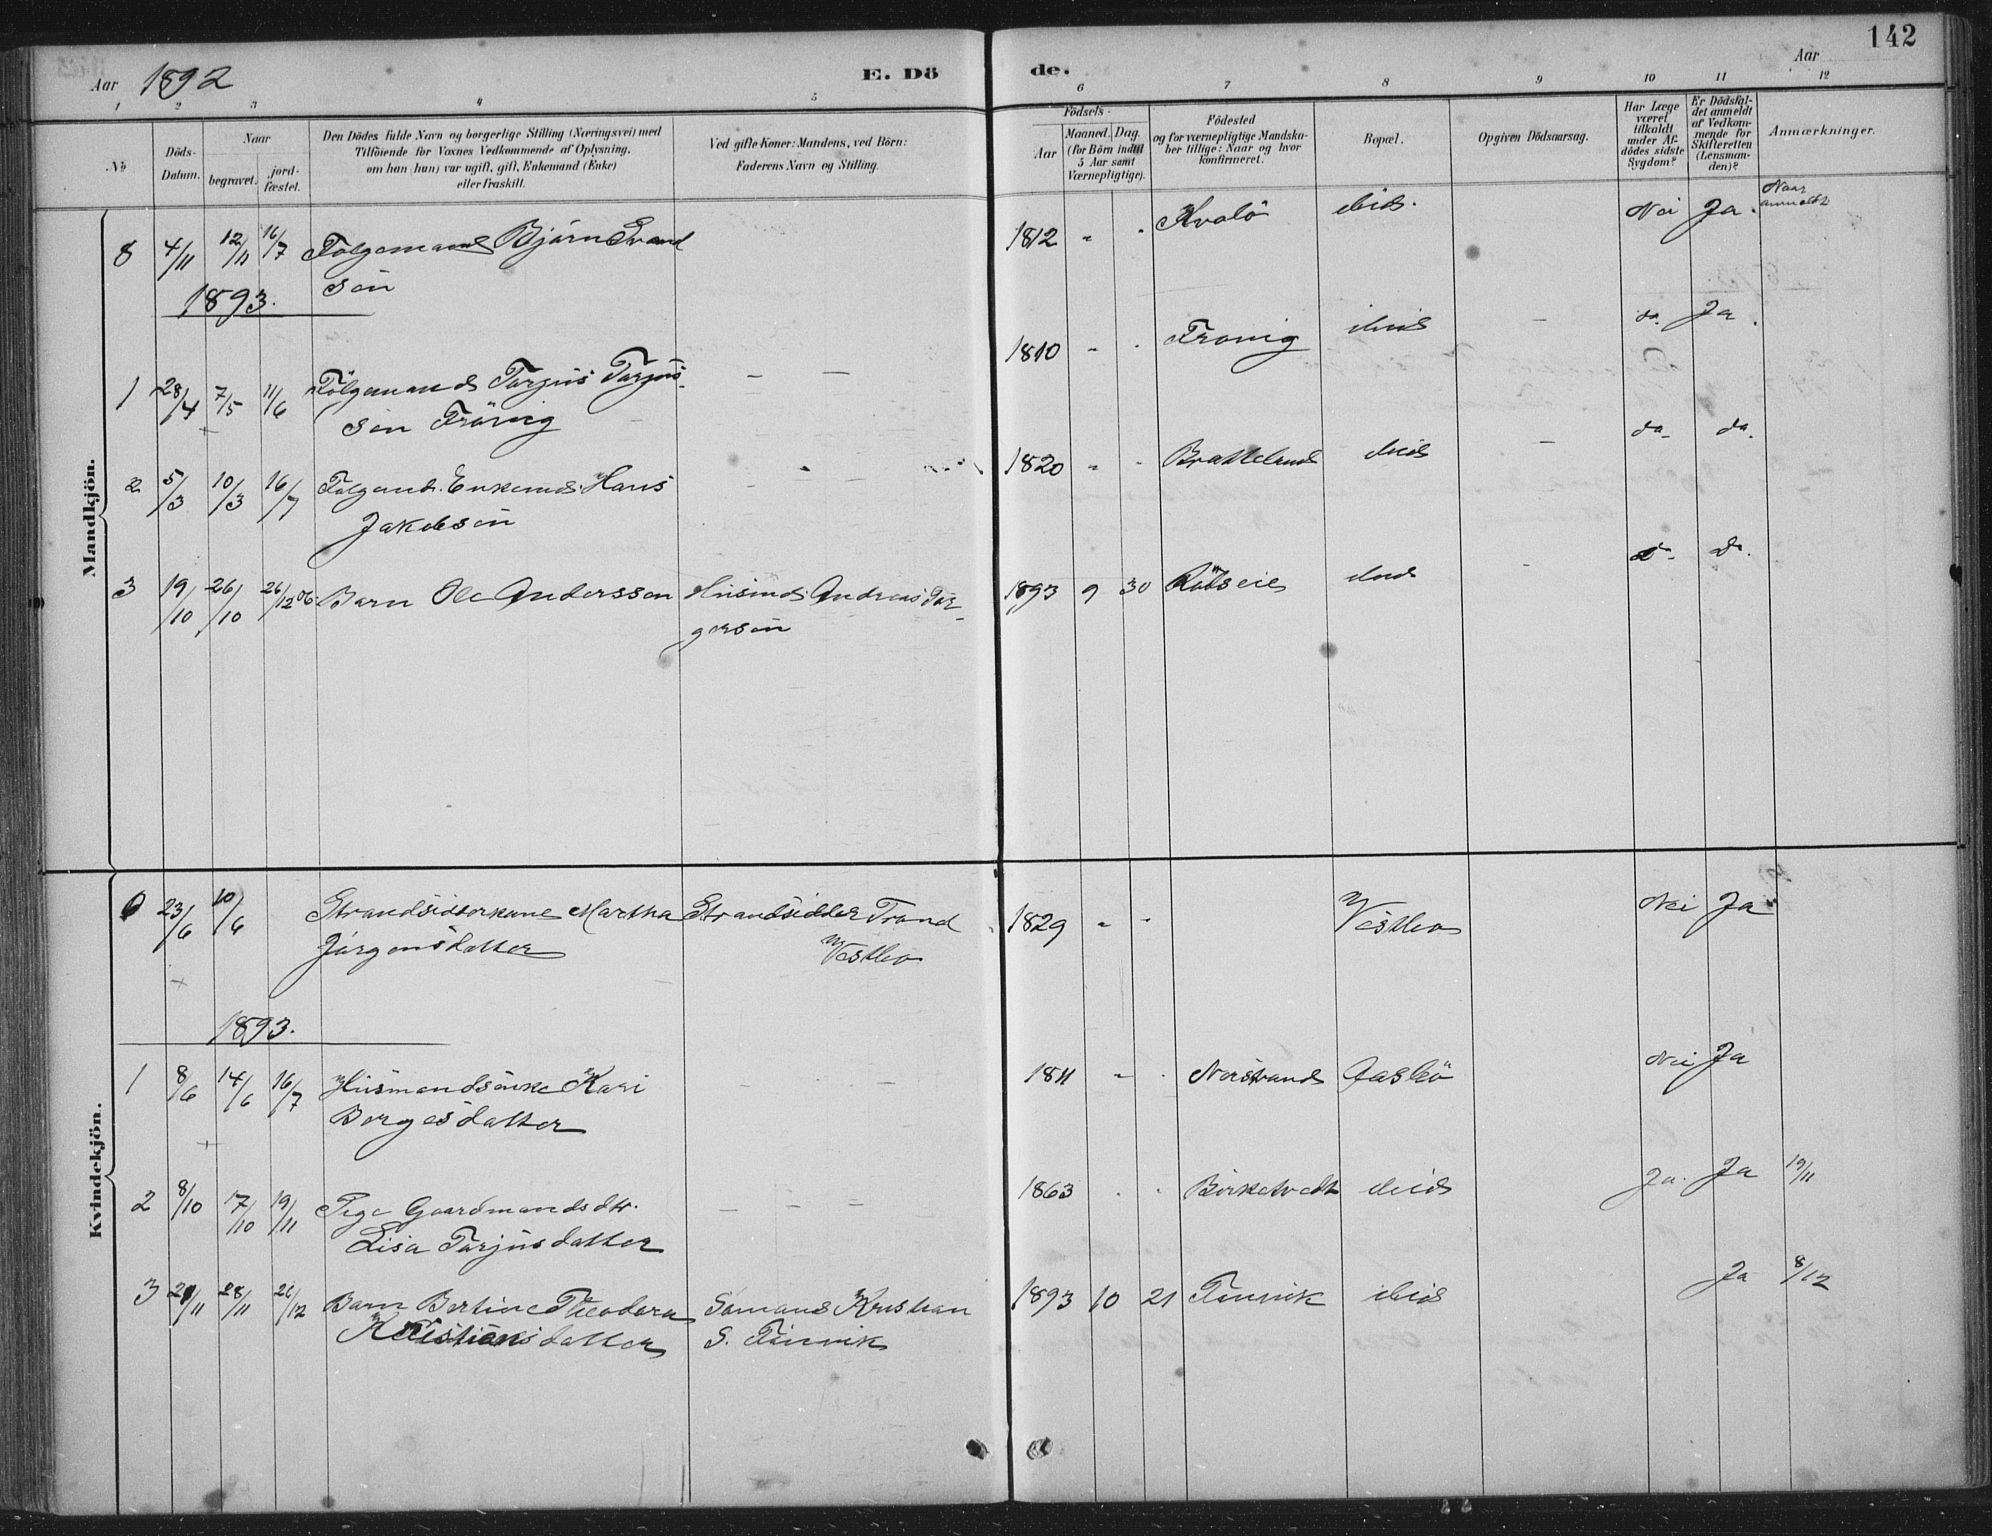 Aar 1892
E. Dö
de.
Aar
142
1 2 3 4 5 6 7 8 9 10 11 12
No
Döds-
Datum.
Naar
begravet.
jord-
fæstet.
Den Dödes fulde Navn og borgerlige Stilling (Næringsvei) med
Tilföiende for Voxnes Vedkommende af Oplysning,
om han (hun) var ugift, gift, Enkemand (Enke)
eller fraskilt.
Ved gifte Koner: Mandens, ved Börn:
Faderens Navn og Stilling.
Födsels-
Aar
Maaned. Dag.
(for Börn indtil
5 Aar samt
Værnepligtige).
Födested
og for værnepligtige Mandska-
ber tillige: Naar og hvor
konfirmeret.
Bopæl.
Opgiven Dödsaarsag.
Har Læge
været
tilkaldt
under Af-
dödes sidste
Sygdom?
Er Dödsfal-
det anmeldt
af Vedkom-
mende for
Skifteretten
(Lensman-
den)?
Anmærkninger.
Mandkjön.
8 4/11 12/11 16/7 Folgemand Björn Evend 1812 - - Kvalö ibid. Nei Ja. Naar anmeldt
sön
1893.
1 28/4 7/5 11/6 Fölgemand Tarjus Tarjus- — — 1810 - - ibid — do. Ja.
sön
2 5/3 10/3 16/7 Folgemd. Enkemd. Hans — — 1820 - - Brattelands ibid — do. do.
Jakobsön
3 19/10 26/10 26/12 06. Barn Ole Anderssen Husmd. Andreas Tar- 1893 9 30 ibid - do. do.
gersön
Kvindekjön.
6 23/6 10/6 Strandsidderkone Martha Strandsidder Trond 1829 - - Nei Ja
Jörgensdatter
1893.
1 8/6 14/6 16/7 Husmandsenke Kari - - 1811 - - Norstrands Nei Ja
Borgesdatter
2 8/10 17/10 19/11 Pige Gaardmandsdtr. — — — 1863 - - Birketvedt ibid Ja. Ja 19/11
Lisa Tarjusdatter
3 28/11 26/12 Barn Bertine Theodora Sömand Kristian 1893 10 21 Finsvik ibid Ja 8/12
Kristiansdatter S. Finsvik